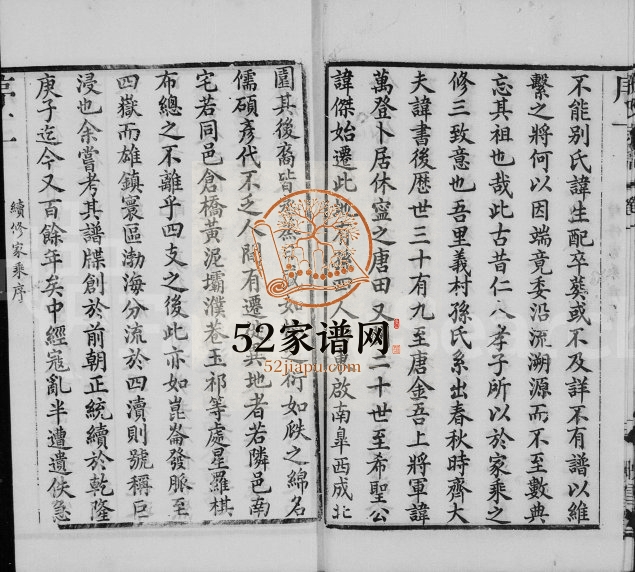 不能別氏諱生配卒葬或不及詳不有譜以維
繫之將何以因端竟委沿流溯源而不至數典
忘其祖也哉此古昔仁人孝子所以於家乘之
修三致意也吾里義村孫氏系出春秋時齊大
夫諱書後歷世三十有九至唐金吾上將軍諱
萬登卜居休寧之唐田又二十世至希聖公
諱傑始遷此地有孫四人啟南皋西成北
園其後裔皆衍如瓞之綿名
儒碩彥代不乏人間有遷其地者若隣邑南
宅若同邑倉橋黃泥壩濮巷玉祁等處星羅棋
布總之不離乎四支之後此亦如崑崙發脈至
四嶽而雄鎮寰區渤海分流於四瀆則號稱巨
浸也余嘗考其譜牒創於前朝正統續於乾隆
庚子迄今又百餘年矣中經寇亂半遭遺佚急
續修家乘序
序一
52家谱网
52jiapu.com